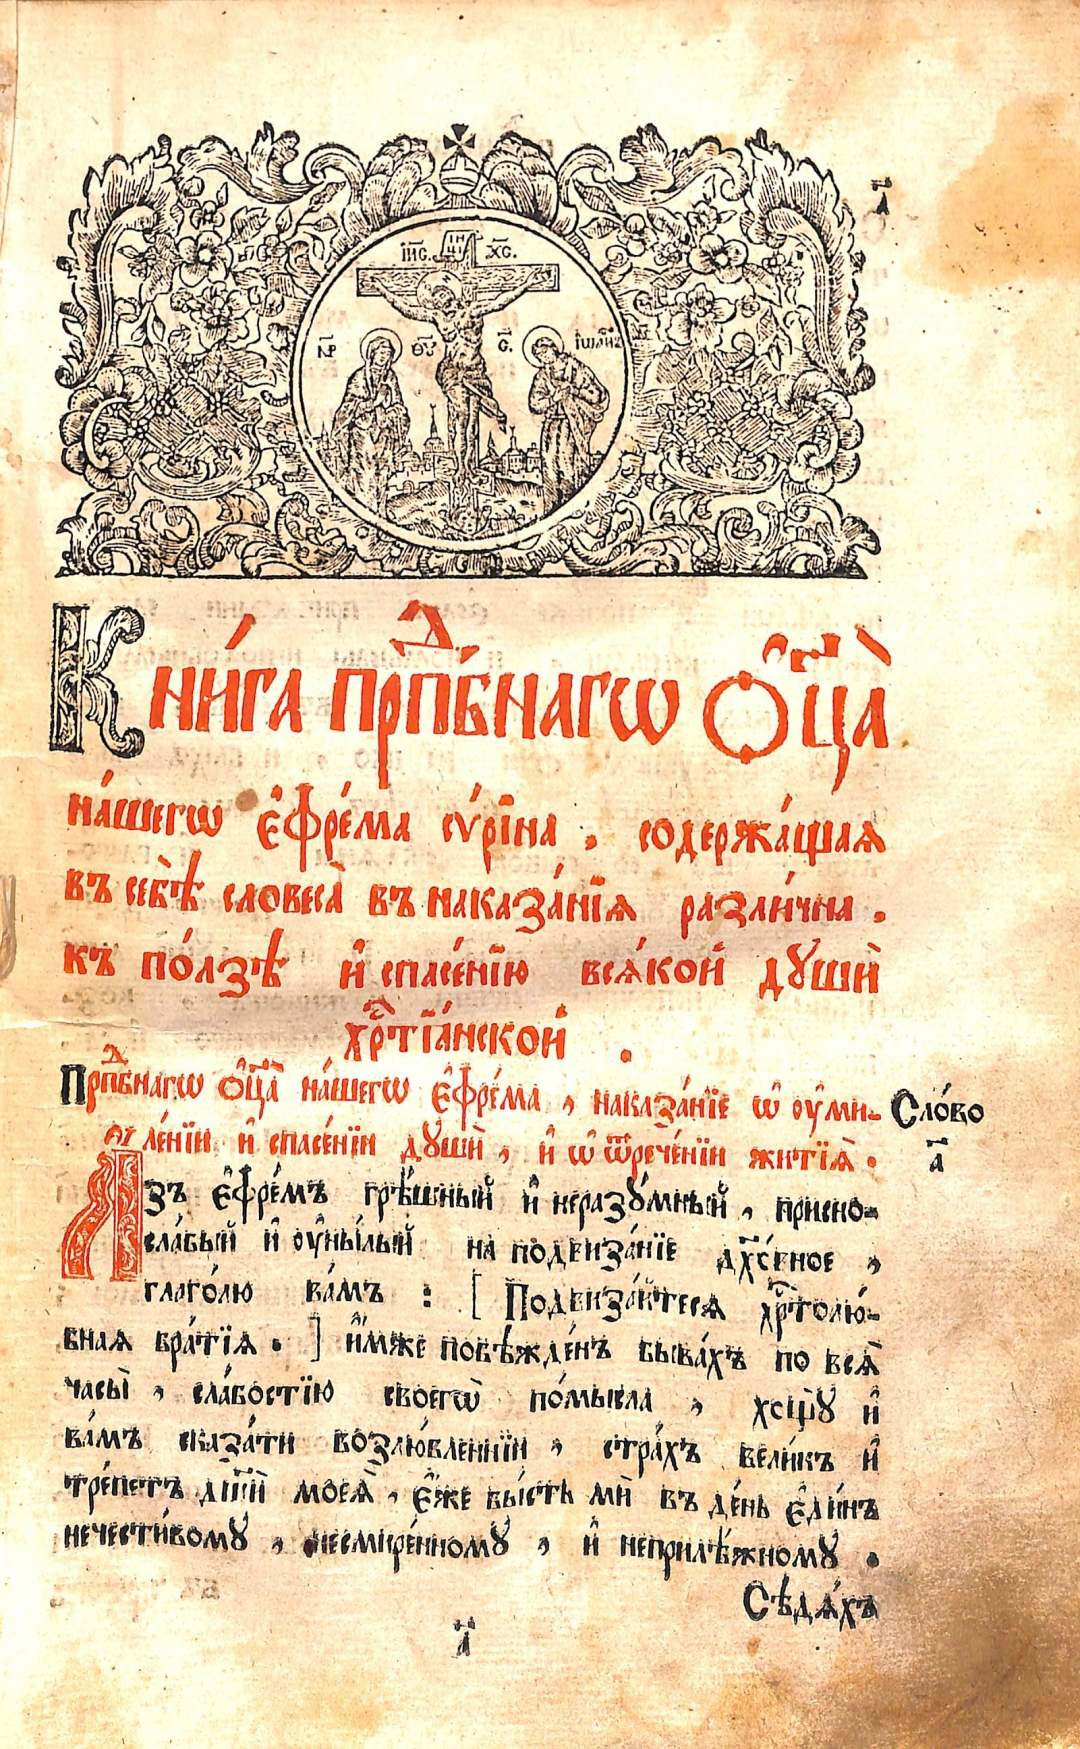 а҃
І҆И҃С. ІНЦИ Х҃С.
М҃Р Ѳ҃У С҃. І҆ѡа́нъ
Кни́га прпⷣбнагѡ Ѻ҆ц҃а̀
на́шегѡ є҆фре́ма сѵ́рїна . содержа́щаѧ
въ себѣ̀ словеса̀ въ наказа́нїѧ разли́чна .
къ по́лзѣ и҆ спасе́нїю всѧ́кой дꙋшѝ
хрⷭ҇тїа́нской .
Прпⷣбнагѡ ѻ҆ц҃а̀ на́шегѡ є҆фре́ма , наказа́нїе ѡ҆ оу҆ми-
ле́нїи и҆ спасе́нїи дꙋшѝ , и҆ ѡ҆ ѿрече́нїи житїѧ̀ .
Сло́во
а҃
А҆зъ є҆фре́мъ грѣ́шный и҆ неразꙋ́мный , присно-
сла́бый и҆ оу҆ны́лый на подвиза́нїе дх҃о́вное ,
глаго́лю ва́мъ : [ Подвиза́йтесѧ хрⷭ҇толю́-
бнаѧ бра́тїѧ . ] и҆́мже побѣжде́нъ быва́хъ по всѧ̀
часы̀ , сла́бостїю своегѡ̀ по́мысла , хощꙋ̀ и҆
ва́мъ сказа́ти возлю́бленнїи , стра́хъ вели́къ и҆
тре́петъ дш҃ѝ моеѧ̀ , є҆́же бы́сть мѝ въ де́нь є҆ди́нъ
нечести́вомꙋ , несмире́нномꙋ , и҆ неприлѣ́жномꙋ .
Сѣдѧ́хъ
а҃